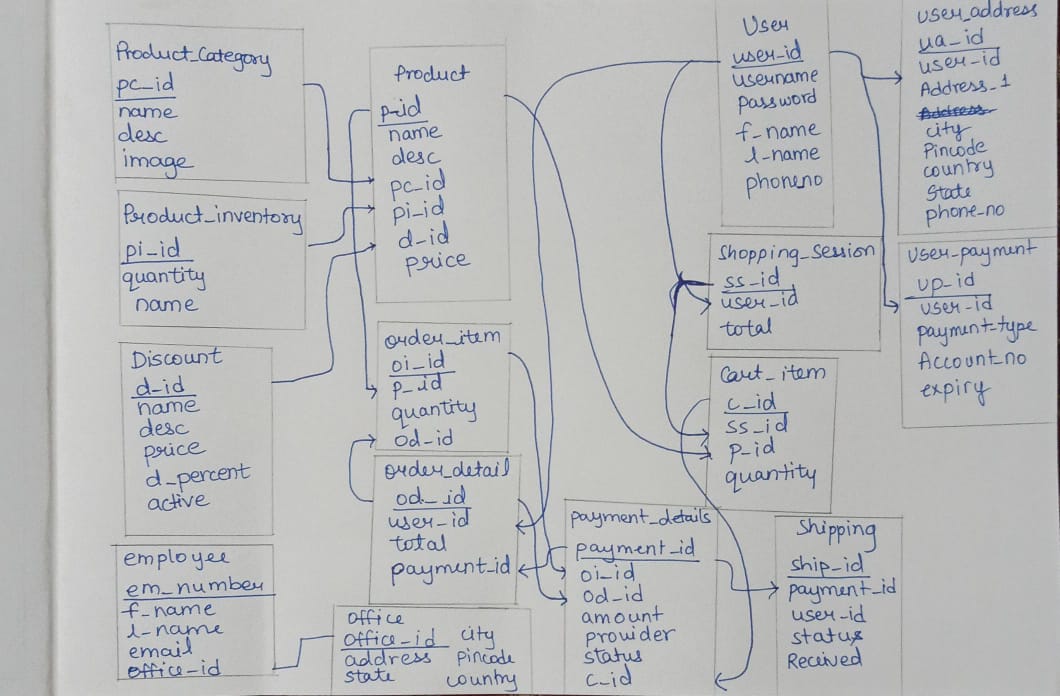 Product_Category
pc_id
name
desc
image
Product_inventory
pi_id
quantity
name
Discount
d_id
name
desc
price
d_percent
active
employee
em_number
f_name
l_name
email
office_id
Product
p_id
name
desc
pc_id
pi_id
d_id
price
order_item
oi_id
p_id
quantity
od_id
order_detail
od_id
user_id
total
payment_id
office
office_id city
address pincode
state country
payment_details
payment_id
oi_id
od_id
amount
provider
status
c_id
User
user_id
username
password
f_name
l_name
phoneno
Shopping_Session
ss_id
user_id
total
Cart_item
c_id
ss_id
p_id
quantity
Shipping
ship_id
payment_id
user_id
status
Received
user_address
ua_id
user_id
Address_1
Address
city
Pincode
country
State
phone_no
User_payment
up_id
user_id
payment_type
Account_no
expiry